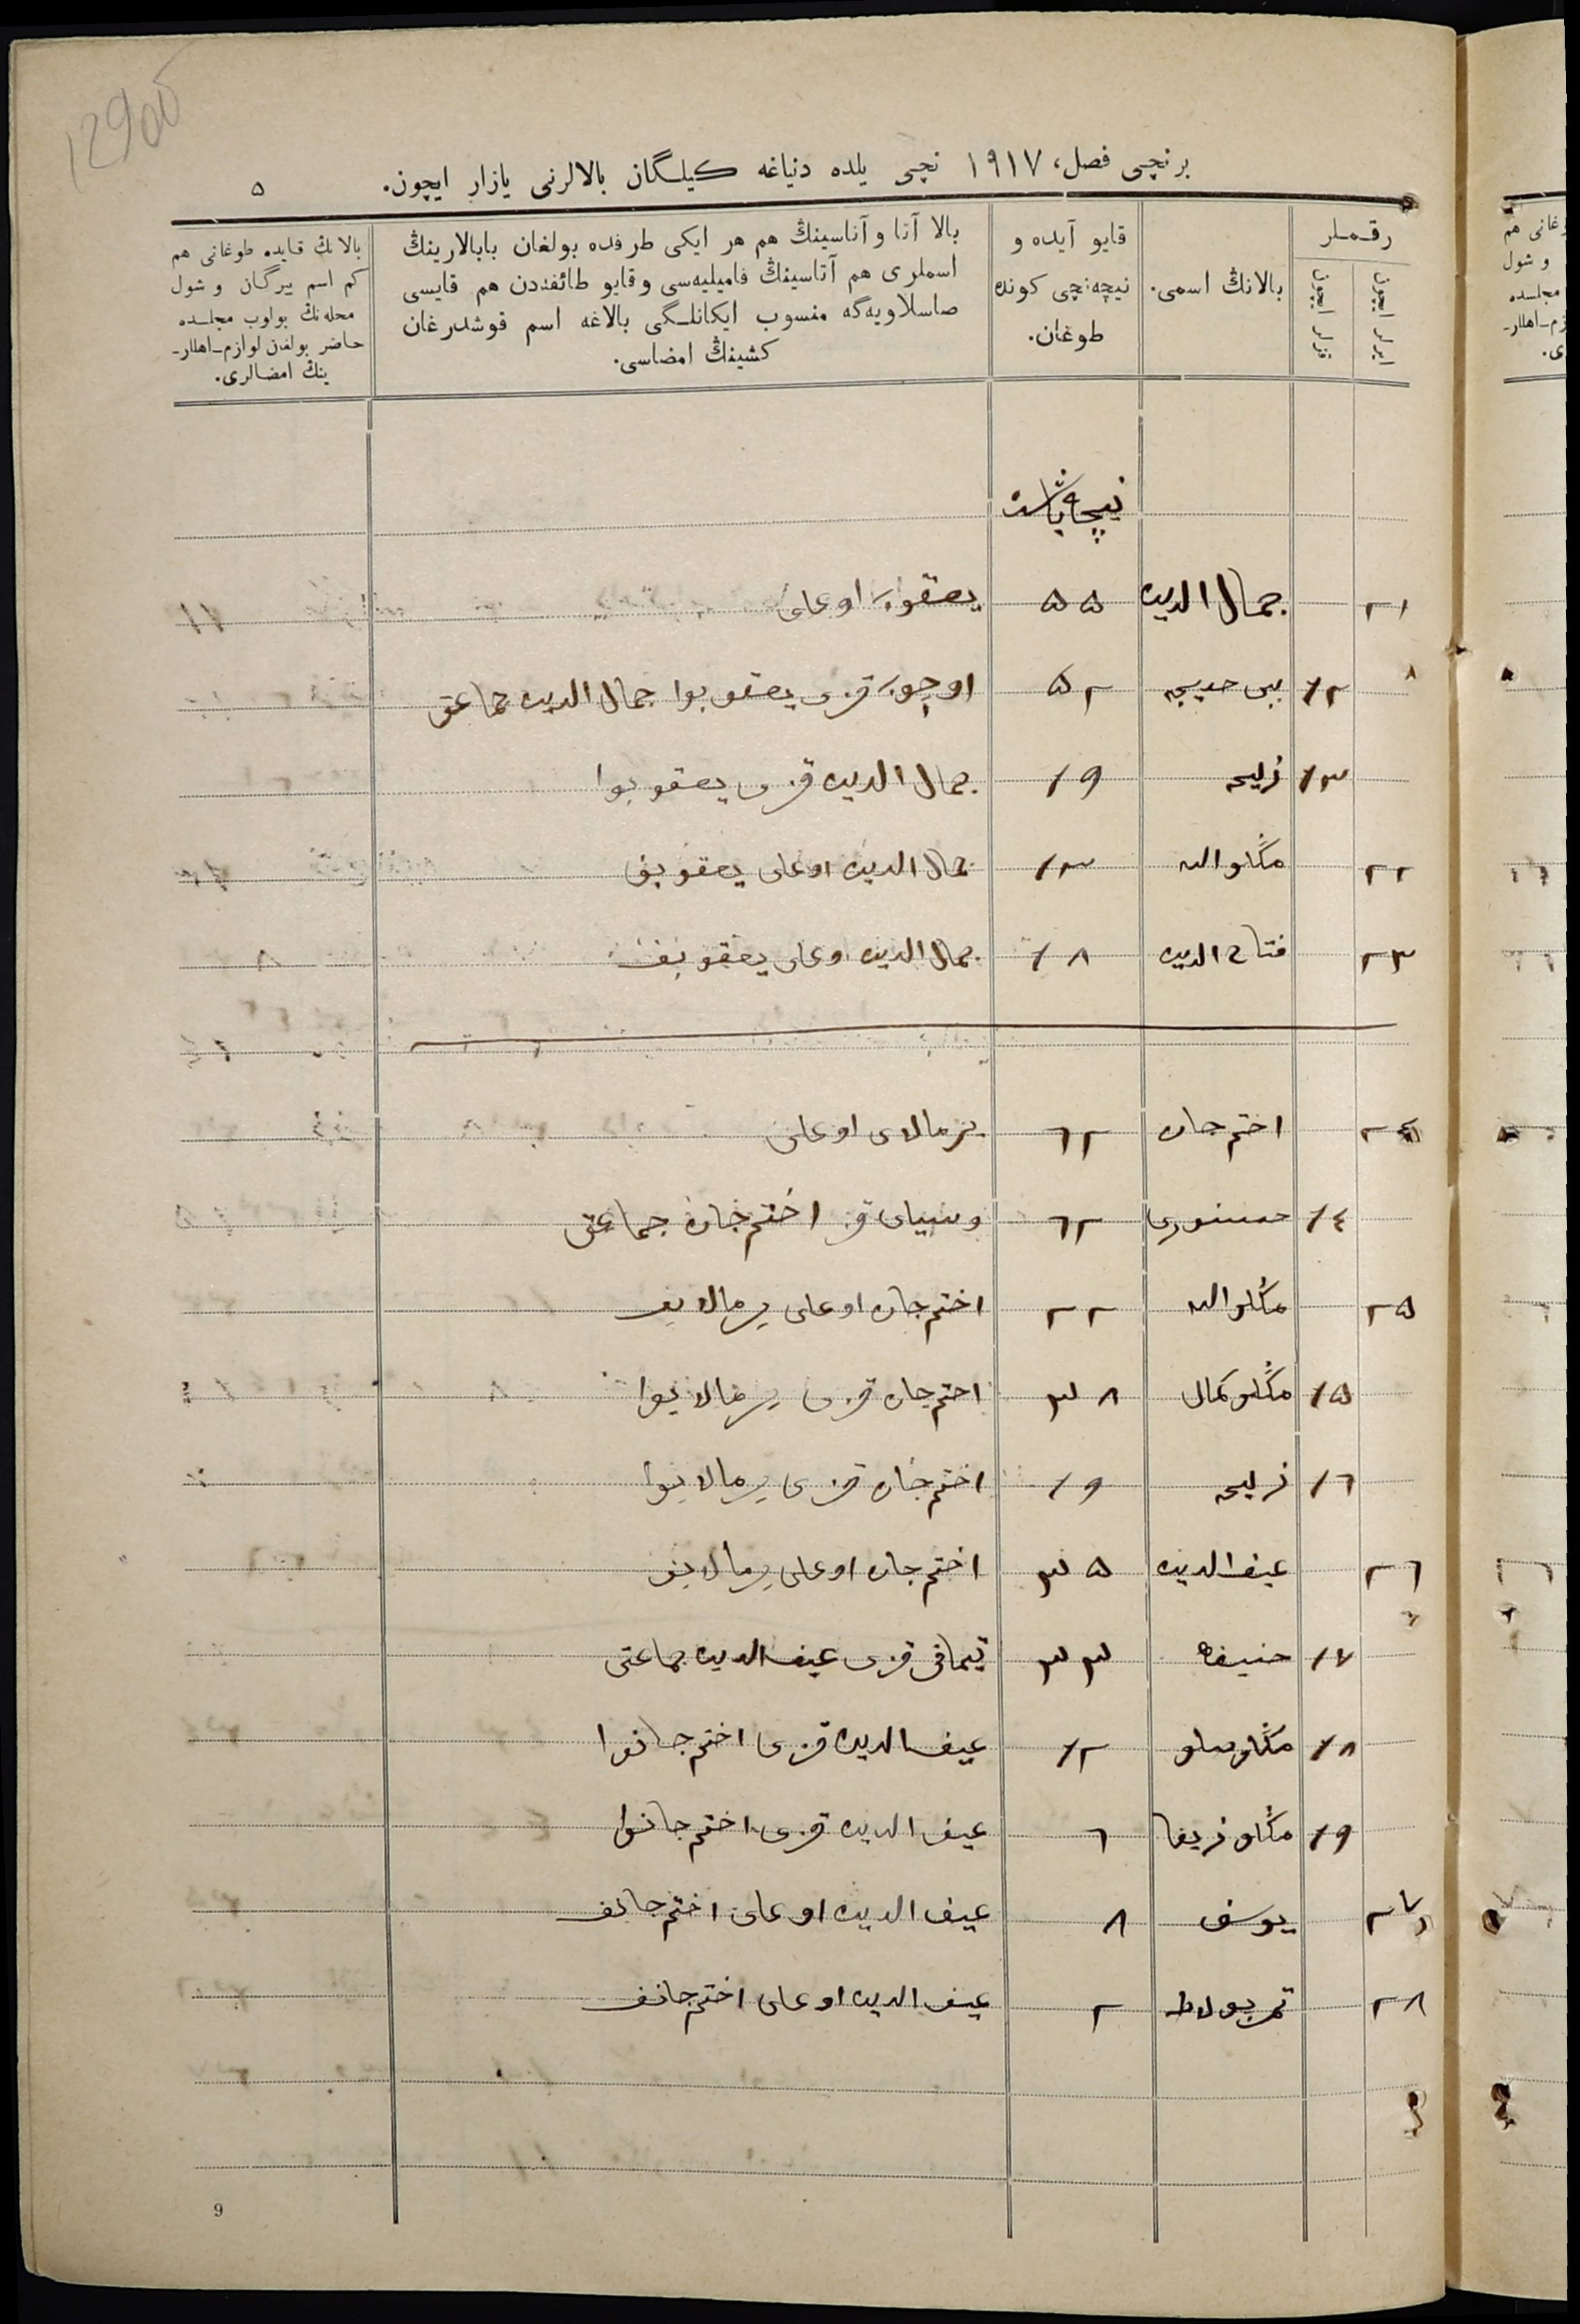 برنچی فصل، ١٩١٧ نچی یلده دنیاغه کیلگان بالالرنی یازار ایچون.
٥
رقملر
ایرلر ایچون
قزلر ایچون
بالانڭ اسمی.
قایو آیده و
نیچه‌نچی کونده
طوغان.
بالا آتا و آناسینڭ هم هر ایکی طرفده بولغان بابالارینڭ
اسملری هم آتاسینڭ فامیلیه‌سی و قایو طائفه‌دن هم قایسی
صاسلاویه‌گه منسوب ایکانلگی بالاغه اسم قوشدرغان
کشینڭ امضاسی.
بالانڭ قایده طوغانی هم
کم اسم بیرگان و شول
محله‌نڭ بولوب مجلسده
حاضر بولغان لوازم-اهللر-
ینڭ امضالری.
نیچه یاشده
٢١ جمال الدین ٥٥ یعقوب اوغلی
١٢ بیبی خدیجه ٥٢ قزی یعقوبوا جمال الدین جماعتی
١٣ زلیحه ١٩ جمال الدین قزی یعقوبوا
٢٢ مڭلو الله ١٣ جمال الدین اوغلی یعقوبف
٢٣ فتاح الدین ١٨ جمال الدین اوغلی یعقوبف
٢٤ اختم جان ٦٢ یرمالای اوغلی
١٤ ٦٢ قز اختم جان جماعتی
٢٥ مڭلو الله ٢٢ اختم جان اوغلی یرمالایف
١٥ مڭلو کمال ٣٨ اختم جان قزی یرمالایوا
١٦ زلیحه ١٩ اختم جان قزی یرمالایوا
٢٦ عیف الدین ٣٥ اختم جان اوغلی یرمالایف
١٧ حنیفه ٣٣ قزی عیف الدین جماعتی
١٨ مڭلو سلو ١٢ عیف الدین قزی اختم جانوا
١٩ مڭلو زیفا ٦ عیف الدین قزی اختم جانوا
٢٧ یوسف ٨ عیف الدین اوغلی اختم جانف
٢٨ تمر بولاط ٢ عیف الدین اوغلی اختم جانف
9